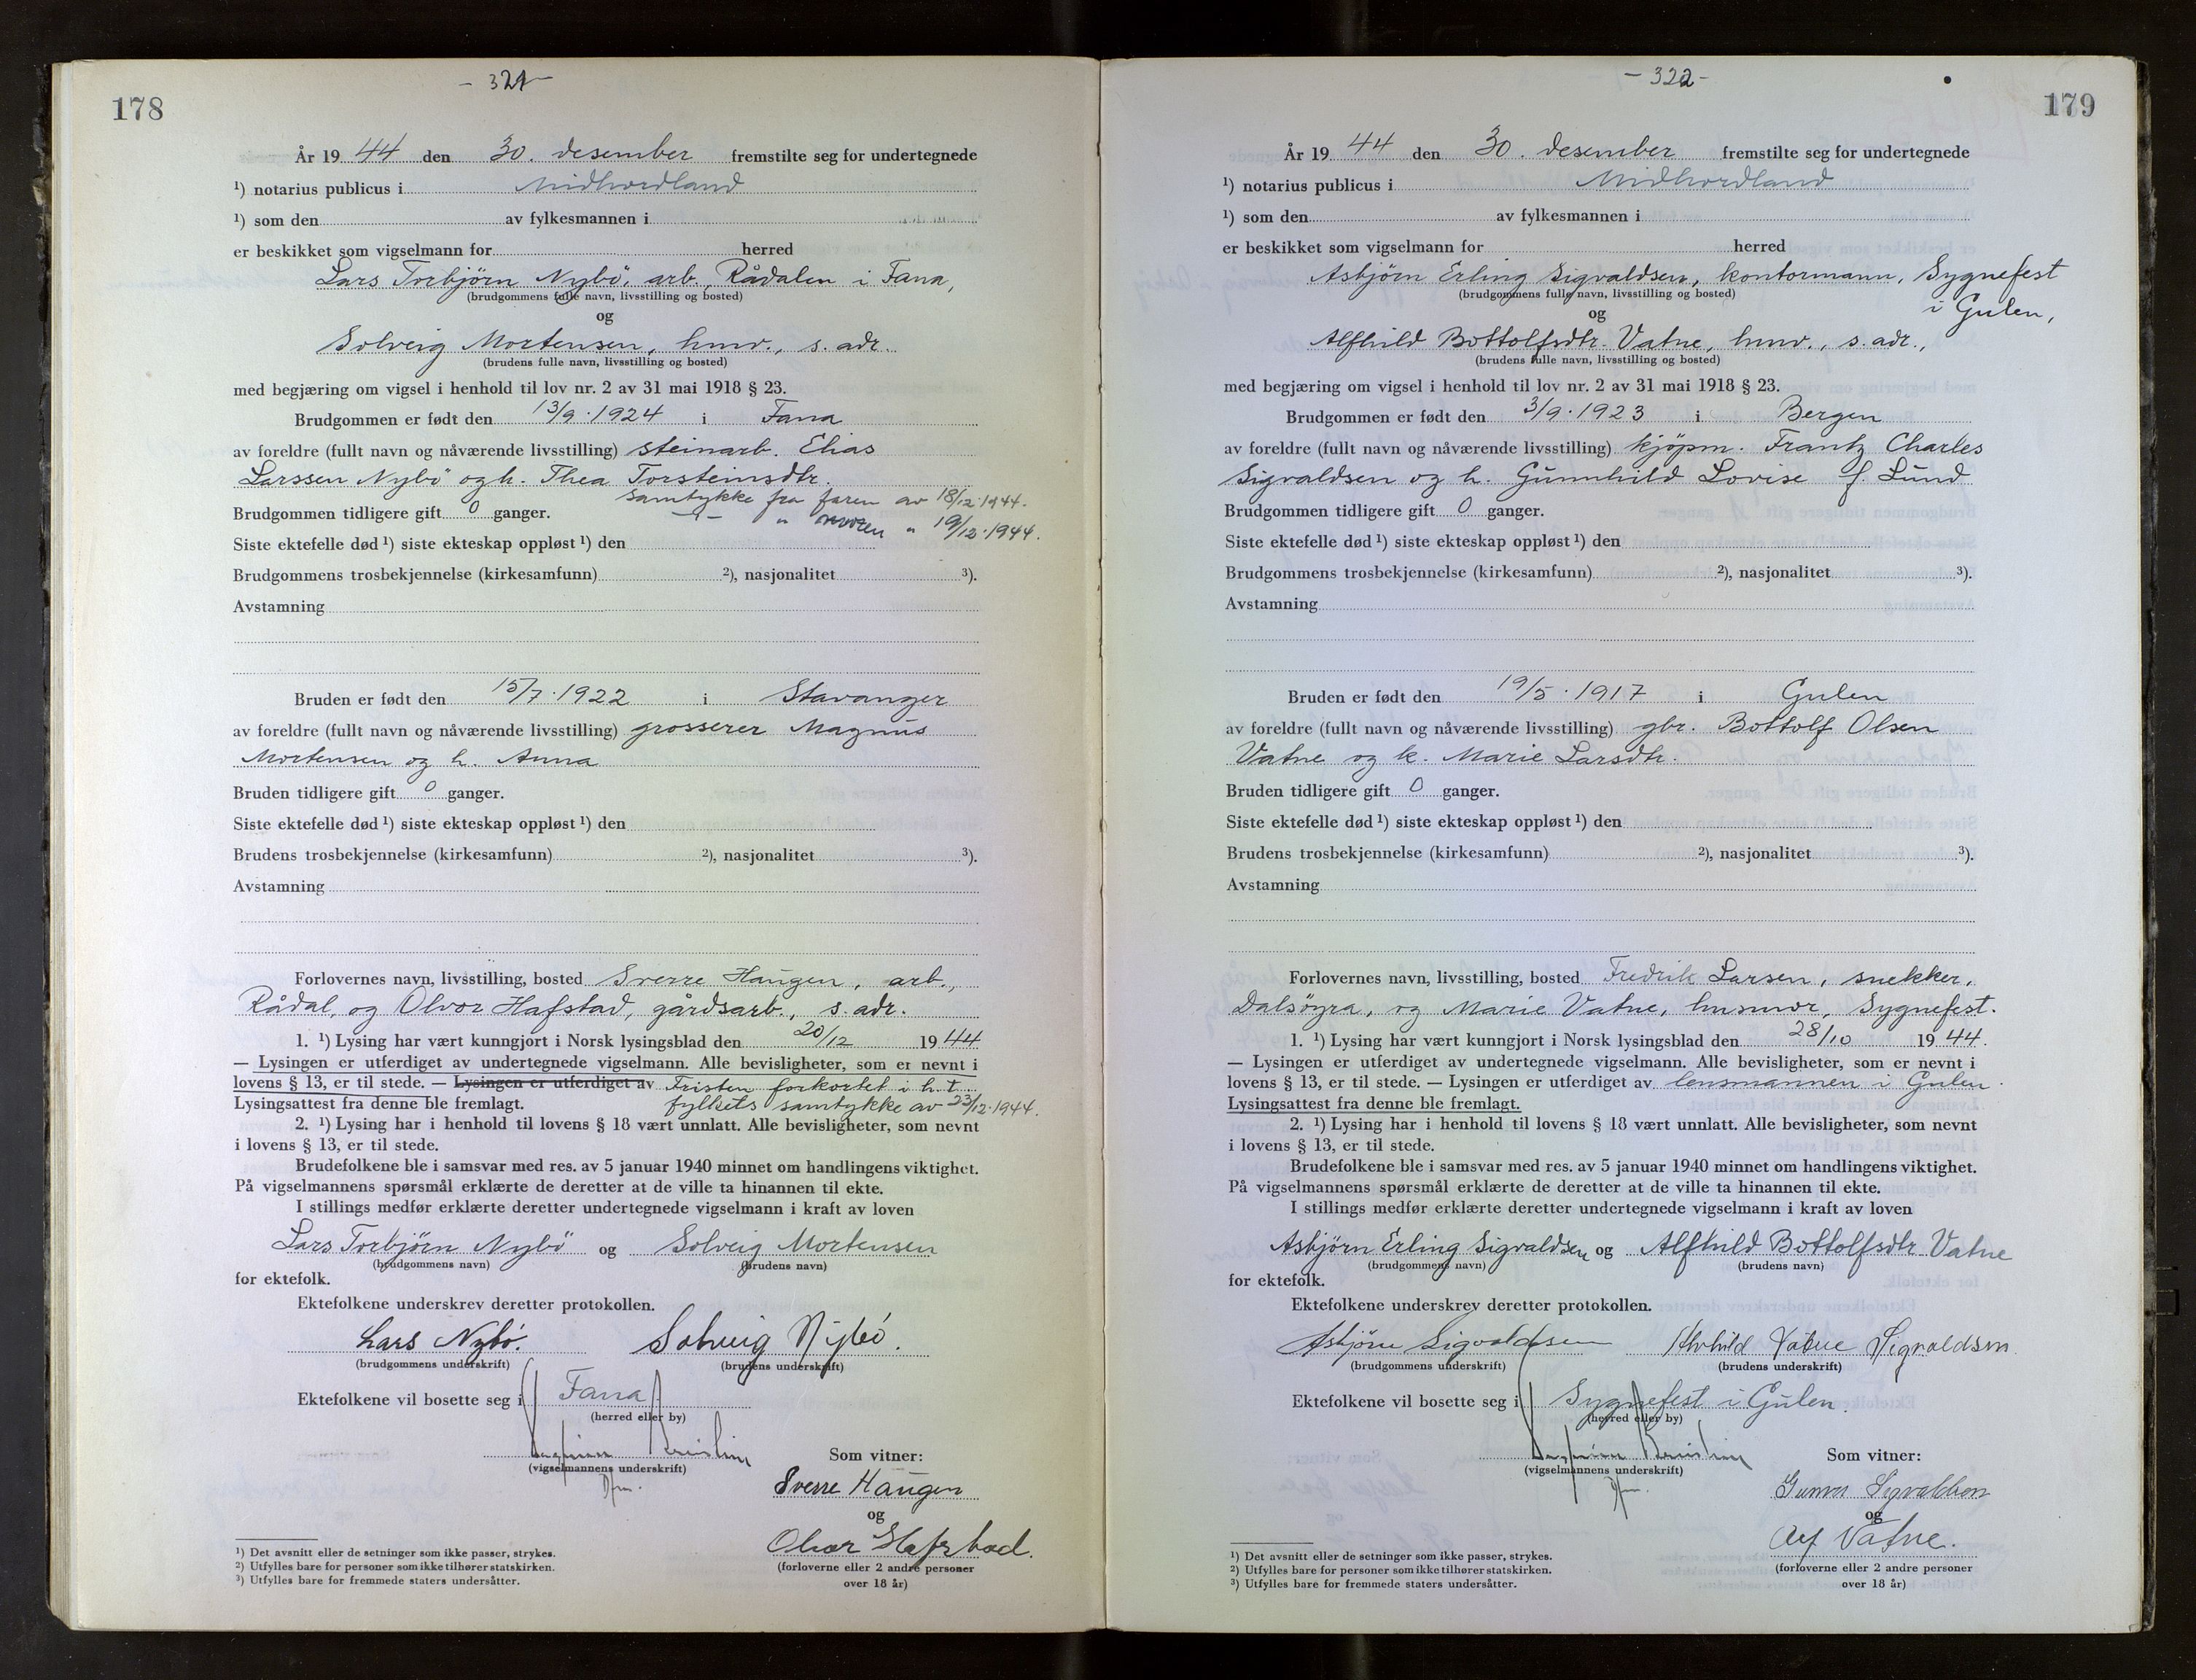 178
- 321 -
År 19 44 den 30. desember fremstilte seg for undertegnede
¹) notarius publicus i Midhordland
¹) som den av fylkesmannen i
er beskikket som vigselmann for herred
Lars Torbjörn Nybö, arb., Rådalen i Fana,
(brudgommens fulle navn, livsstilling og bosted)
og
Solveig Mortensen, hmv., s. adr.
(brudens fulle navn, livsstilling og bosted)
med begjæring om vigsel i henhold til lov nr. 2 av 31 mai 1918 § 23.
Brudgommen er født den 13/9.1924 i Fana
av foreldre (fullt navn og nåværende livsstilling) steinarb. Elias
Larssen Nybö og h. Thea Torsteinsdtr.
samtykke fra faren av 18/12.1944.
Brudgommen tidligere gift 0 ganger. -"- " moren " 19/12.1944.
Siste ektefelle død ¹) siste ekteskap oppløst ¹) den
Brudgommens trosbekjennelse (kirkesamfunn) ²), nasjonalitet ³).
Avstamning
Bruden er født den 15/7.1922 i Stavanger
av foreldre (fullt navn og nåværende livsstilling) grosserer Magnus
Mortensen og h. Anna
Bruden tidligere gift 0 ganger.
Siste ektefelle død ¹) siste ekteskap oppløst ¹) den
Brudens trosbekjennelse (kirkesamfunn) ²), nasjonalitet ³).
Avstamning
Forlovernes navn, livsstilling, bosted Sverre Haugen, arb.,
Rådal, og Olvor Hafstad, gårdsarb., s. adr.
1. ¹) Lysing har vært kunngjort i Norsk lysingsblad den 20/12 1944
— Lysingen er utferdiget av undertegnede vigselmann. Alle bevisligheter, som er nevnt i
lovens § 13, er til stede. — Lysingen er utferdiget av Fristen forkortet i h. t.
Lysingsattest fra denne ble fremlagt. fylkets samtykke av 23/12.1944.
2. ¹) Lysing har i henhold til lovens § 18 vært unnlatt. Alle bevisligheter, som nevnt
i lovens § 13, er til stede.
Brudefolkene ble i samsvar med res. av 5 januar 1940 minnet om handlingens viktighet.
På vigselmannens spørsmål erklærte de deretter at de ville ta hinannen til ekte.
I stillings medfør erklærte deretter undertegnede vigselmann i kraft av loven
Lars Torbjörn Nybö og Solveig Mortensen
(brudgommens navn) (brudens navn)
for ektefolk.
Ektefolkene underskrev deretter protokollen.
Lars Nybö. Solveig Nybö.
(brudgommens underskrift) (brudens underskrift)
Ektefolkene vil bosette seg i Fana
(herred eller by)
(vigselmannens underskrift)
Som vitner:
Sverre Haugen
og
Olvar Hafstad.
(forloverne eller 2 andre personer
over 18 år)
¹) Det avsnitt eller de setninger som ikke passer, strykes.
²) Utfylles bare for personer som ikke tilhører statskirken.
³) Utfylles bare for fremmede staters undersåtter.
- 322 -
179
År 19 44 den 30. desember fremstilte seg for undertegnede
¹) notarius publicus i Midhordland
¹) som den av fylkesmannen i
er beskikket som vigselmann for herred
Asbjörn Erling Sigvaldsen, kontormann, Sygnefest
(brudgommens fulle navn, livsstilling og bosted)
i Gulen,
og
Alfhild Bottolfsdtr. Vatne, hmv., s. adr.,
(brudens fulle navn, livsstilling og bosted)
med begjæring om vigsel i henhold til lov nr. 2 av 31 mai 1918 § 23.
Brudgommen er født den 3/9.1923 i Bergen
av foreldre (fullt navn og nåværende livsstilling) kjöpm. Frantz Charles
Sigvaldsen og h. Gunnhild Lovise f. Lund
Brudgommen tidligere gift 0 ganger.
Siste ektefelle død ¹) siste ekteskap oppløst ¹) den
Brudgommens trosbekjennelse (kirkesamfunn) ²), nasjonalitet ³).
Avstamning
Bruden er født den 19/5.1917 i Gulen
av foreldre (fullt navn og nåværende livsstilling) gbr. Bottolf Olsen
Vatne og k. Marie Larsdtr.
Bruden tidligere gift 0 ganger.
Siste ektefelle død ¹) siste ekteskap oppløst ¹) den
Brudens trosbekjennelse (kirkesamfunn) ²), nasjonalitet ³).
Avstamning
Forlovernes navn, livsstilling, bosted Fredrik Larsen, snekker,
Dalsöyra, og Marie Vatne, husmor, Sygnefest.
1. ¹) Lysing har vært kunngjort i Norsk lysingsblad den 28/10 1944.
— Lysingen er utferdiget av undertegnede vigselmann. Alle bevisligheter, som er nevnt i
lovens § 13, er til stede. — Lysingen er utferdiget av lensmannen i Gulen.
Lysingsattest fra denne ble fremlagt.
2. ¹) Lysing har i henhold til lovens § 18 vært unnlatt. Alle bevisligheter, som nevnt
i lovens § 13, er til stede.
Brudefolkene ble i samsvar med res. av 5 januar 1940 minnet om handlingens viktighet.
På vigselmannens spørsmål erklærte de deretter at de ville ta hinannen til ekte.
I stillings medfør erklærte deretter undertegnede vigselmann i kraft av loven
Asbjörn Erling Sigvaldsen og Alfhild Bottolfsdtr Vatne
(brudgommens navn) (brudens navn)
for ektefolk.
Ektefolkene underskrev deretter protokollen.
Asbjörn Sigvaldsen Alvhild Vatne Sigvaldsen
(brudgommens underskrift) (brudens underskrift)
Ektefolkene vil bosette seg i Sygnefest i Gulen.
(herred eller by)
(vigselmannens underskrift)
Som vitner:
Gunnar Sigvaldsen
og
Alf Vatne.
(forloverne eller 2 andre personer
over 18 år)
¹) Det avsnitt eller de setninger som ikke passer, strykes.
²) Utfylles bare for personer som ikke tilhører statskirken.
³) Utfylles bare for fremmede staters undersåtter.